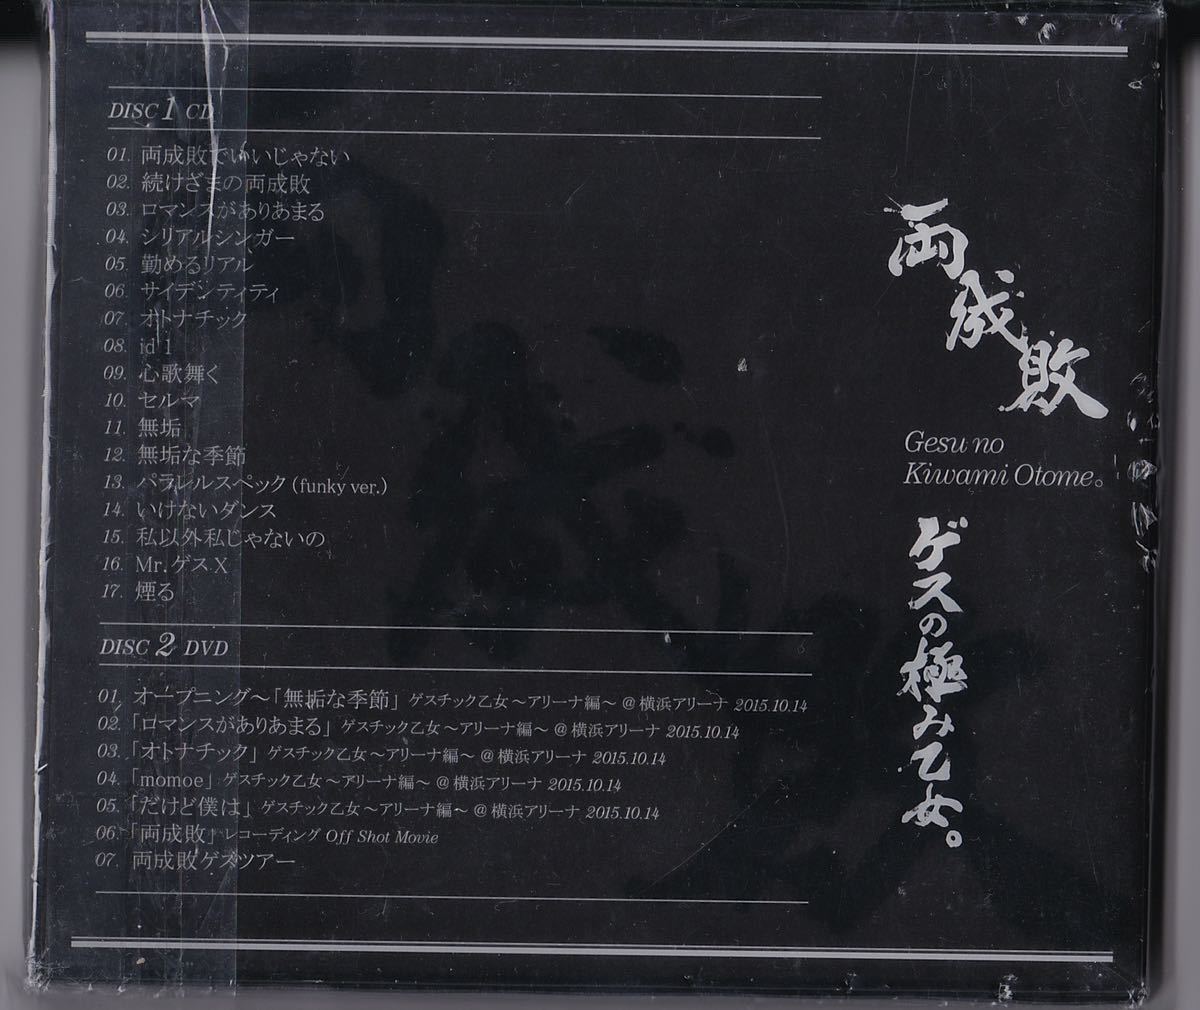 DISC 1 CD
01. 両成敗でいいじゃない
02. 続けざまの両成敗
03. ロマンスがありあまる
04. シリアルシンガー
05. 勤めるリアル
06. サイデンティティ
07. オトナチック
08. id 1
09. 心歌舞く
10. セルマ
11. 無垢
12. 無垢な季節
13. パラレルスペック (funky ver.)
14. いけないダンス
15. 私以外私じゃないの
16. Mr.ゲスX
17. 煙る
DISC 2 DVD
01. オープニング～「無垢な季節」 ゲスチック乙女～アリーナ編～ @ 横浜アリーナ 2015.10.14
02. 「ロマンスがありあまる」 ゲスチック乙女～アリーナ編～ @ 横浜アリーナ 2015.10.14
03. 「オトナチック」 ゲスチック乙女～アリーナ編～ @ 横浜アリーナ 2015.10.14
04. 「momoe」 ゲスチック乙女～アリーナ編～ @ 横浜アリーナ 2015.10.14
05. 「だけど僕は」 ゲスチック乙女～アリーナ編～ @ 横浜アリーナ 2015.10.14
06. 「両成敗」 レコーディング Off Shot Movie
07. 両成敗ゲスツアー
両成敗
Gesu no
Kiwami Otome。
ゲスの極み乙女。